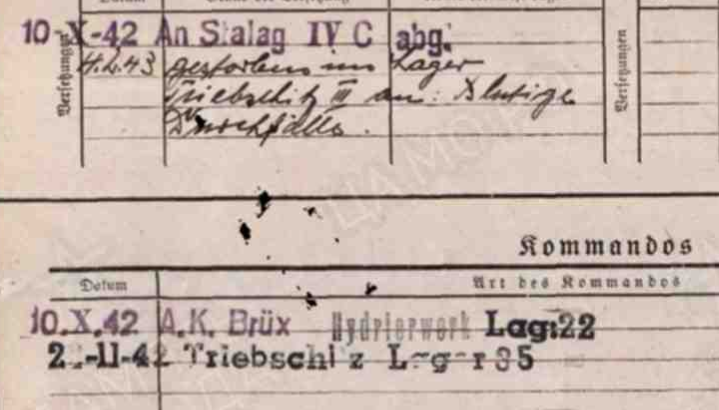 10-X-42 An Stalag IV C abg.
Versetzungen
4.2.43 gestorben im Lager
Triebschitz III an: Blutige
Durchfälle.
Versetzungen
Kommandos
Datum Art des Kommandos
10.X.42 A.K. Brüx Hydrierwerk Lag:22
-11-42 Triebschitz Lager 35